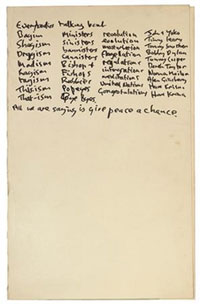 Everybodies talking bout
Bagism Ministers revolution John + Yoko
Shagism sinisters evolution Timmy Leary
Dragism bannisters masturbation
Madism cannisters flagellation Bobby Dylan
Ragism Bishops + regulations Tommy Cooper
Tagism integrations Derek Taylor
This-ism Rabbis + meditations Norman Mailer
That-ism Pop eyes United Nations Alan Ginsberg
Bye byes Congratulations Hare Krishna
All we are saying is give peace a chance